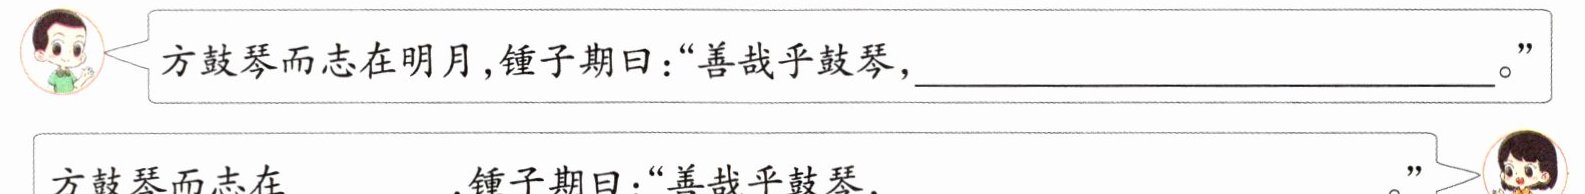 方鼓琴而志在明月，锺子期曰：“善哉乎鼓琴，____。”
方鼓琴而志在____，锺子期曰：“善哉乎鼓琴，____。”